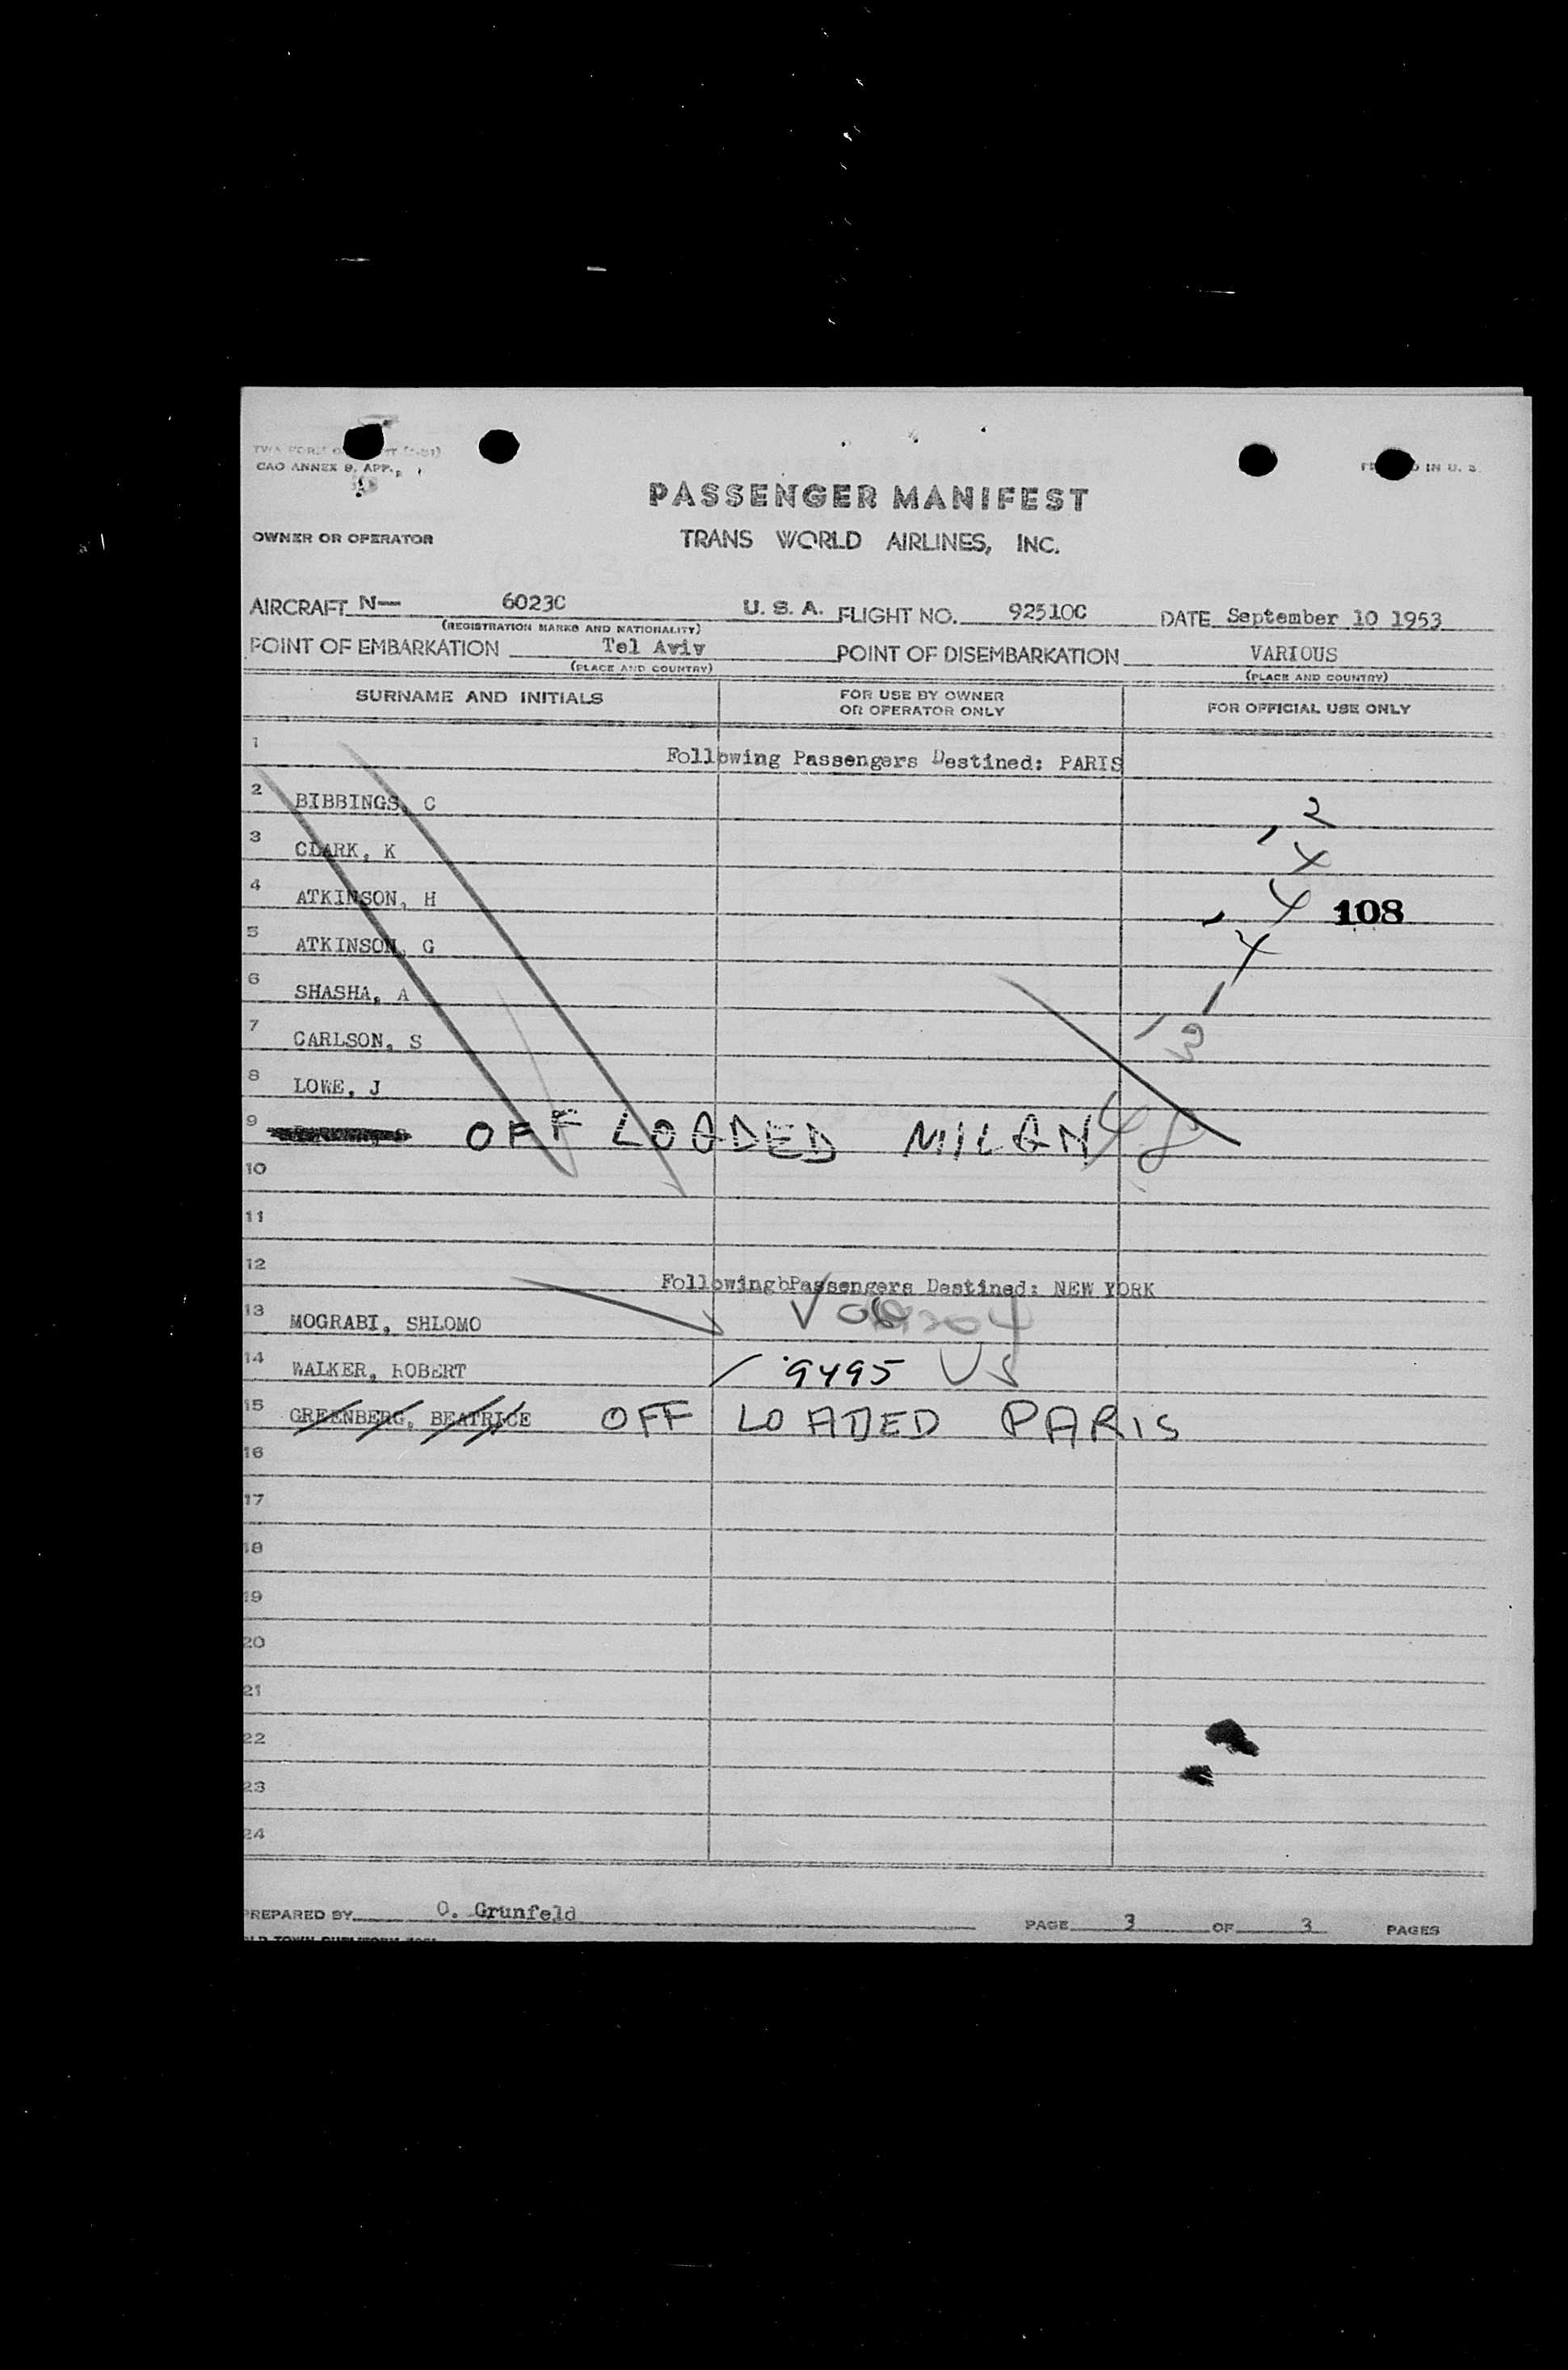 CAO ANNEX 9, APP.
IN U. S.
PASSENGER MANIFEST
OWNER OR OPERATOR
TRANS WORLD AIRLINES, INC.
AIRCRAFT N— 6023C U. S. A. FLIGHT NO. 92510C DATE September 10 1953
(REGISTRATION MARKS AND NATIONALITY)
POINT OF EMBARKATION Tel Aviv POINT OF DISEMBARKATION VARIOUS
(PLACE AND COUNTRY) (PLACE AND COUNTRY)
SURNAME AND INITIALS FOR USE BY OWNER OR OPERATOR ONLY FOR OFFICIAL USE ONLY
1 Following Passengers Destined: PARIS
2 BIBBINGS, C 2
3 CLARK, K 4
4 ATKINSON, H 4 108
5 ATKINSON, G 4
6 SHASHA, A
7 CARLSON, S 3
8 LOWE, J
9 OFF LOADED MILAN
10
11
12 FollowingbPassengers Destined: NEW YORK
13 MOGRABI, SHLOMO
14 WALKER, ROBERT 9495 US
15 GREENBERG, BEATRICE OFF LOADED PARIS
16
17
18
19
20
21
22
23
24
PREPARED BY O. Grunfeld PAGE 3 OF 3 PAGES